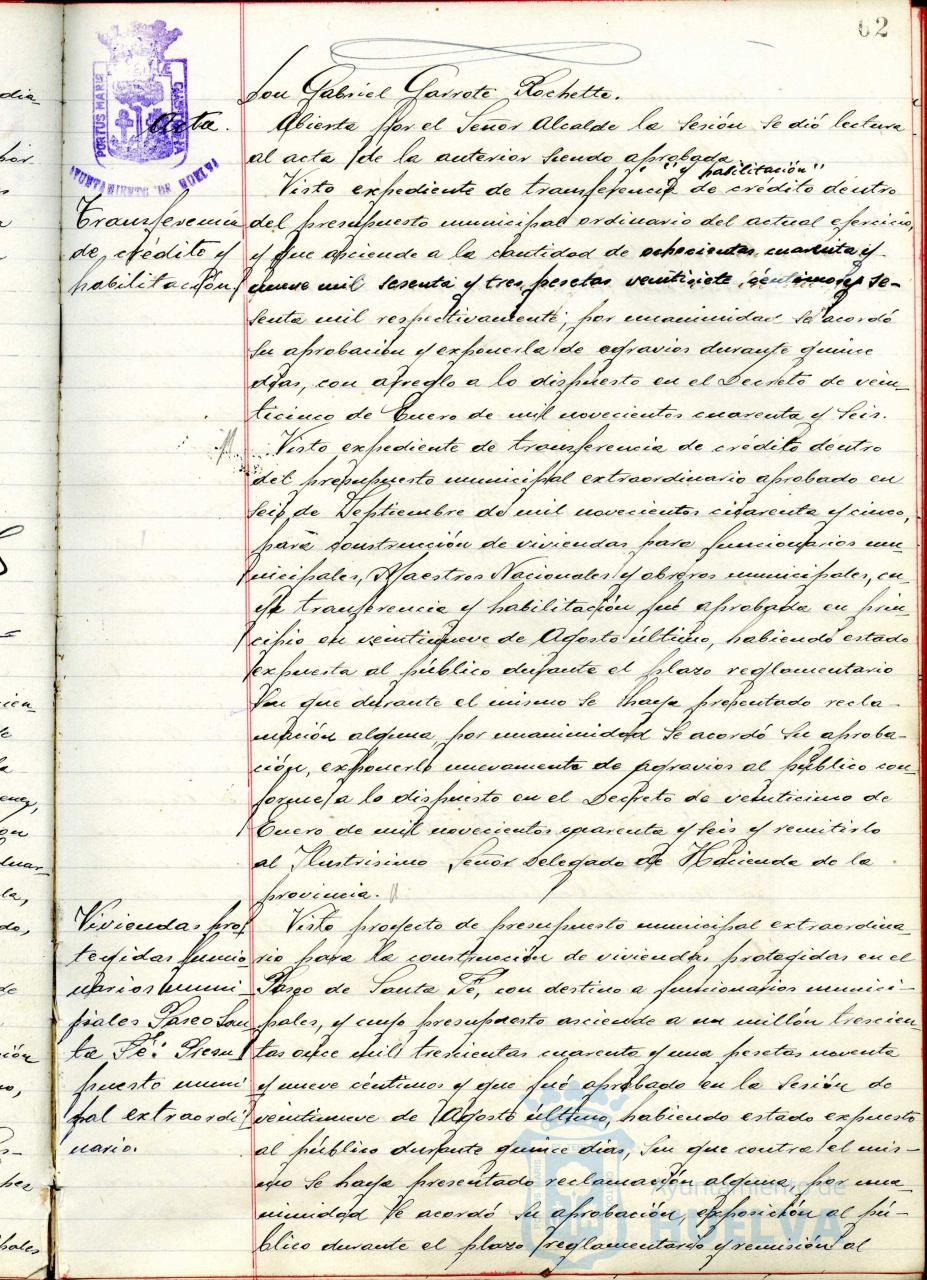 62
PORTUS MARIS
AYUNTAMIENTO DE HUELVA
Don Gabriel Garrote Rochette.
Acta.
Abierta por el Señor Alcalde la sesión se dió lectura
al acta de la anterior siendo aprobada.
" y habilitación"
Visto expediente de transferencia de crédito dentro
Transferencia
de crédito y
habilitación.
del presupuesto municipal ordinario del actual ejercicio,
y que asciende a la cantidad de ochocientas cuarenta y
nueve mil sesenta y tres pesetas veintisiete céntimos y se-
senta mil respectivamente, por unanimidad se acordó
su aprobación y exponerla de agravios durante quince
días, con arreglo a lo dispuesto en el Decreto de vein-
ticinco de Enero de mil novecientos cuarenta y seis.
Visto expediente de transferencia de crédito dentro
del presupuesto municipal extraordinario aprobado en
seis de Septiembre de mil novecientos cuarenta y cinco,
para construcción de viviendas para funcionarios mu-
nicipales, Maestros Nacionales y obreros municipales, cu-
ya tranferencia y habilitación fué aprobada en prin-
cipio en veintinueve de Agosto último, habiendo estado
expuesta al público durante el plazo reglamentario
sin que durante el mismo se haya presentado recla-
mación alguna, por unanimidad se acordó su aproba-
ción, exponerlo nuevamente de agravios al público con-
forme a lo dispuesto en el Decreto de veinticinco de
Enero de mil novecientos cuarenta y seis y remitirlo
al Ilustrisimo Señor Delegado de Hacienda de la
provincia.
Viviendas pro-
tegidas funcio-
narios muni-
cipales Paseo San-
ta Fé: Presu-
puesto muni-
pal extraordi-
nario.
Visto proyecto de presupuesto municipal extraordina-
rio para la construcción de viviendas protegidas en el
Paseo de Santa Fé, con destino a funcionarios munici-
pales, y cuyo presupuesto asciende a un millón trescien-
tas once mil trescientas cuarenta y una pesetas noventa
y nueve céntimos y que fué aprobado en la sesión de
veintinueve de Agosto último, habiendo estado expuesto
al público durante quince días, sin que contra el mis-
mo se haya presentado reclamación alguna, por una-
nimidad se acordó su aprobación, exposición al pú-
blico durante el plazo reglamentario y remisión al
Ayuntamiento de
HUELVA